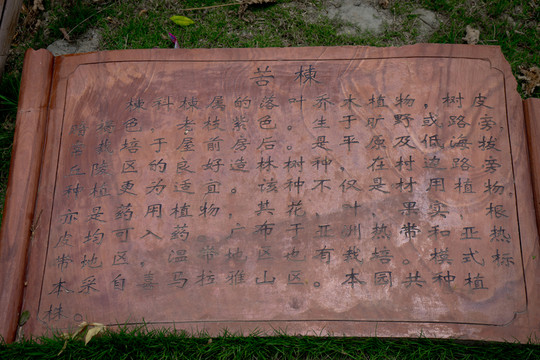 苦楝
楝科楝属的落叶乔木植物，树皮
暗褐色，老枝紫色。生于旷野或路旁，
常栽培于屋前房后。是平原及低海拔
丘陵区的良好造林树种，在村边路旁
种植更为适宜。该种不仅是材用植物
亦是药用植物，其花、叶、果实、根
皮均可入药，广布于亚洲热带和亚热
带地区，温带地区也有栽培。模式标
本采自喜马拉雅山区。本园共种植
株。